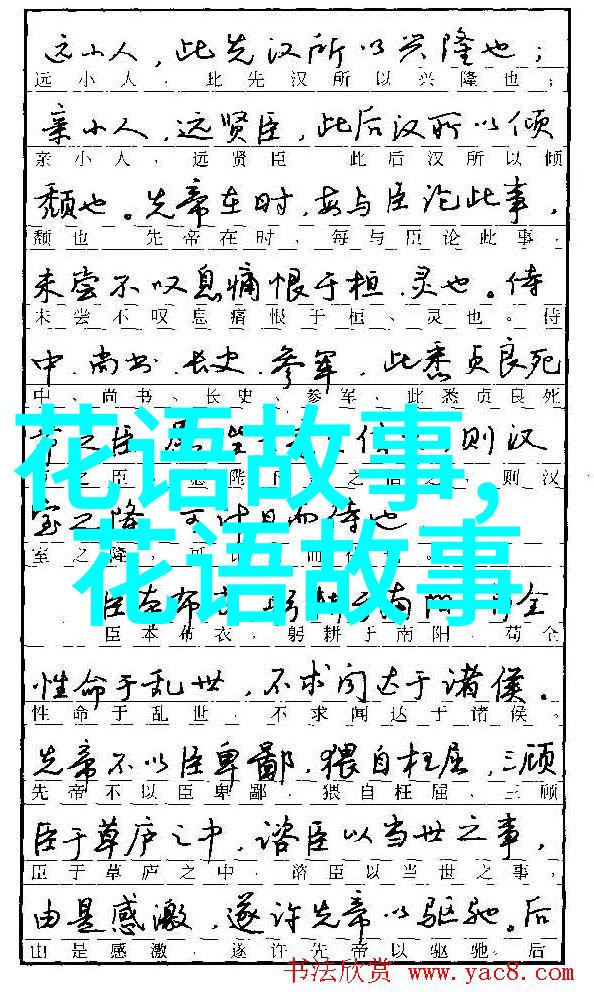 远小人，此先汉所以兴隆也；
远小人，此先汉所以兴隆也；
亲小人，远贤臣，此后汉所以倾
亲小人，远贤臣 此后汉所以倾
颓也。先帝在时，每与臣论此事，
颓也 先帝在时，每与臣论此事，
未尝不叹息痛恨于桓、灵也。侍
未尝不叹息痛恨于桓、灵也。侍
中、尚书、长史、参军，此悉贞良死
中、尚书、长史、参军，此悉贞良死
之臣 则汉
之臣 陛 之 之 则汉
花语故事，
室之隆 可计日而待也
室之隆，可 而
花语故事
臣本布衣 南 全
臣本布衣，躬耕于南阳，苟全
性命于乱世，不求闻达于诸侯。
性命于乱世，不求闻达于诸侯。
先帝不以臣卑鄙，猥自枉屈，三顾
先帝不以臣卑鄙，猥自枉屈、三顾
臣于草庐之中，谘臣以当世之事，
臣于草庐之中，谘臣以当世之事，
由是感激，遂许先帝以驱驰。后
由是感激，遂许先帝以驱驰。后
书法欣赏 www.yac8.com